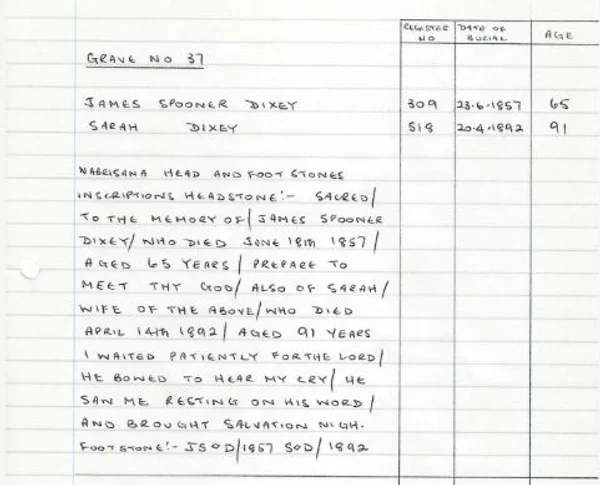 REGISTER NO
DATE OF BURIAL
AGE
GRAVE NO 37
JAMES SPOONER DIXEY 309 23.6.1857 65
SARAH DIXEY 518 20.4.1892 91
NABRISANA HEAD AND FOOT STONES
INSCRIPTIONS HEADSTONE:- SACRED/
TO THE MEMORY OF/ JAMES SPOONER
DIXEY/ WHO DIED JUNE 18TH 1857/
AGED 65 YEARS/ PREPARE TO
MEET THY GOD/ ALSO OF SARAH/
WIFE OF THE ABOVE/ WHO DIED
APRIL 14TH 1892/ AGED 91 YEARS
I WAITED PATIENTLY FOR THE LORD/
HE BOWED TO HEAR MY CRY/ HE
SAW ME RESTING ON HIS WORD/
AND BROUGHT SALVATION NIGH.
FOOTSTONE:- JSD/1857 SD/1892